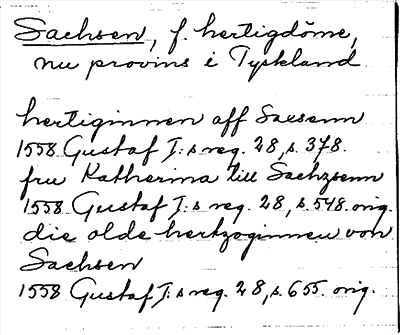 Sachsen, f. hertigdöme,
nu provins i Tyskland
hertiginnen aff Saxsenn
1558 Gustaf I:s reg. 28, s. 378.
fru Katherina till Sachzsenn
1558 Gustaf I:s reg. 28, s. 548. orig.
die olde hertzoginnen von
Sachsen
1558 Gustaf I:s reg. 28, s. 655. orig.